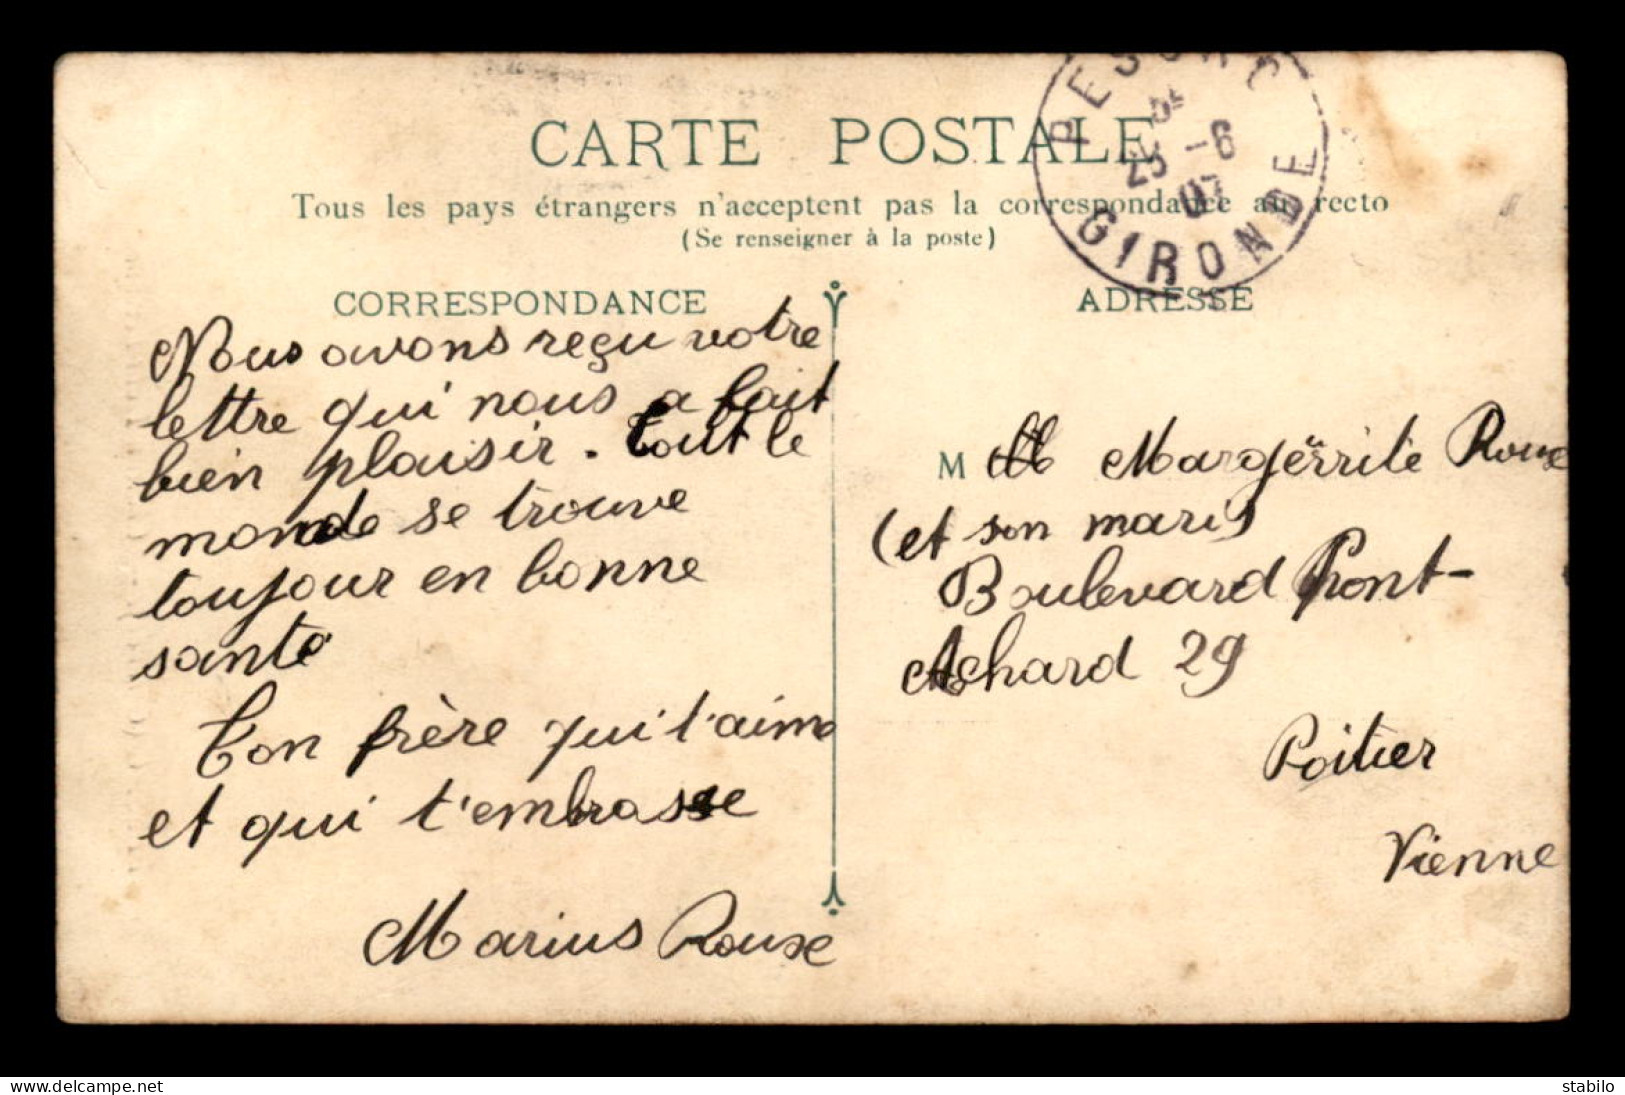 CARTE POSTALE
Tous les pays étrangers n'acceptent pas la correspondance au recto
(Se renseigner à la poste)
PESSAC
25 -6
07
GIRONDE
CORRESPONDANCE
Nous avons reçu votre
lettre qui nous a fait
bien plaisir. tout le
monde se trouve
toujour en bonne
santé
Ton frère qui t'aime
et qui t'embrasse
Marius Roux
ADRESSE
M Margerrite Roux
(et son mari)
Boulevard Pont-
Achard 29
Poitier
Vienne
delcampe.net
stabilo